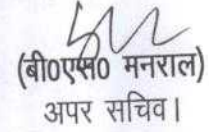 (बी0एस0 मनराल)
अपर सचिव।